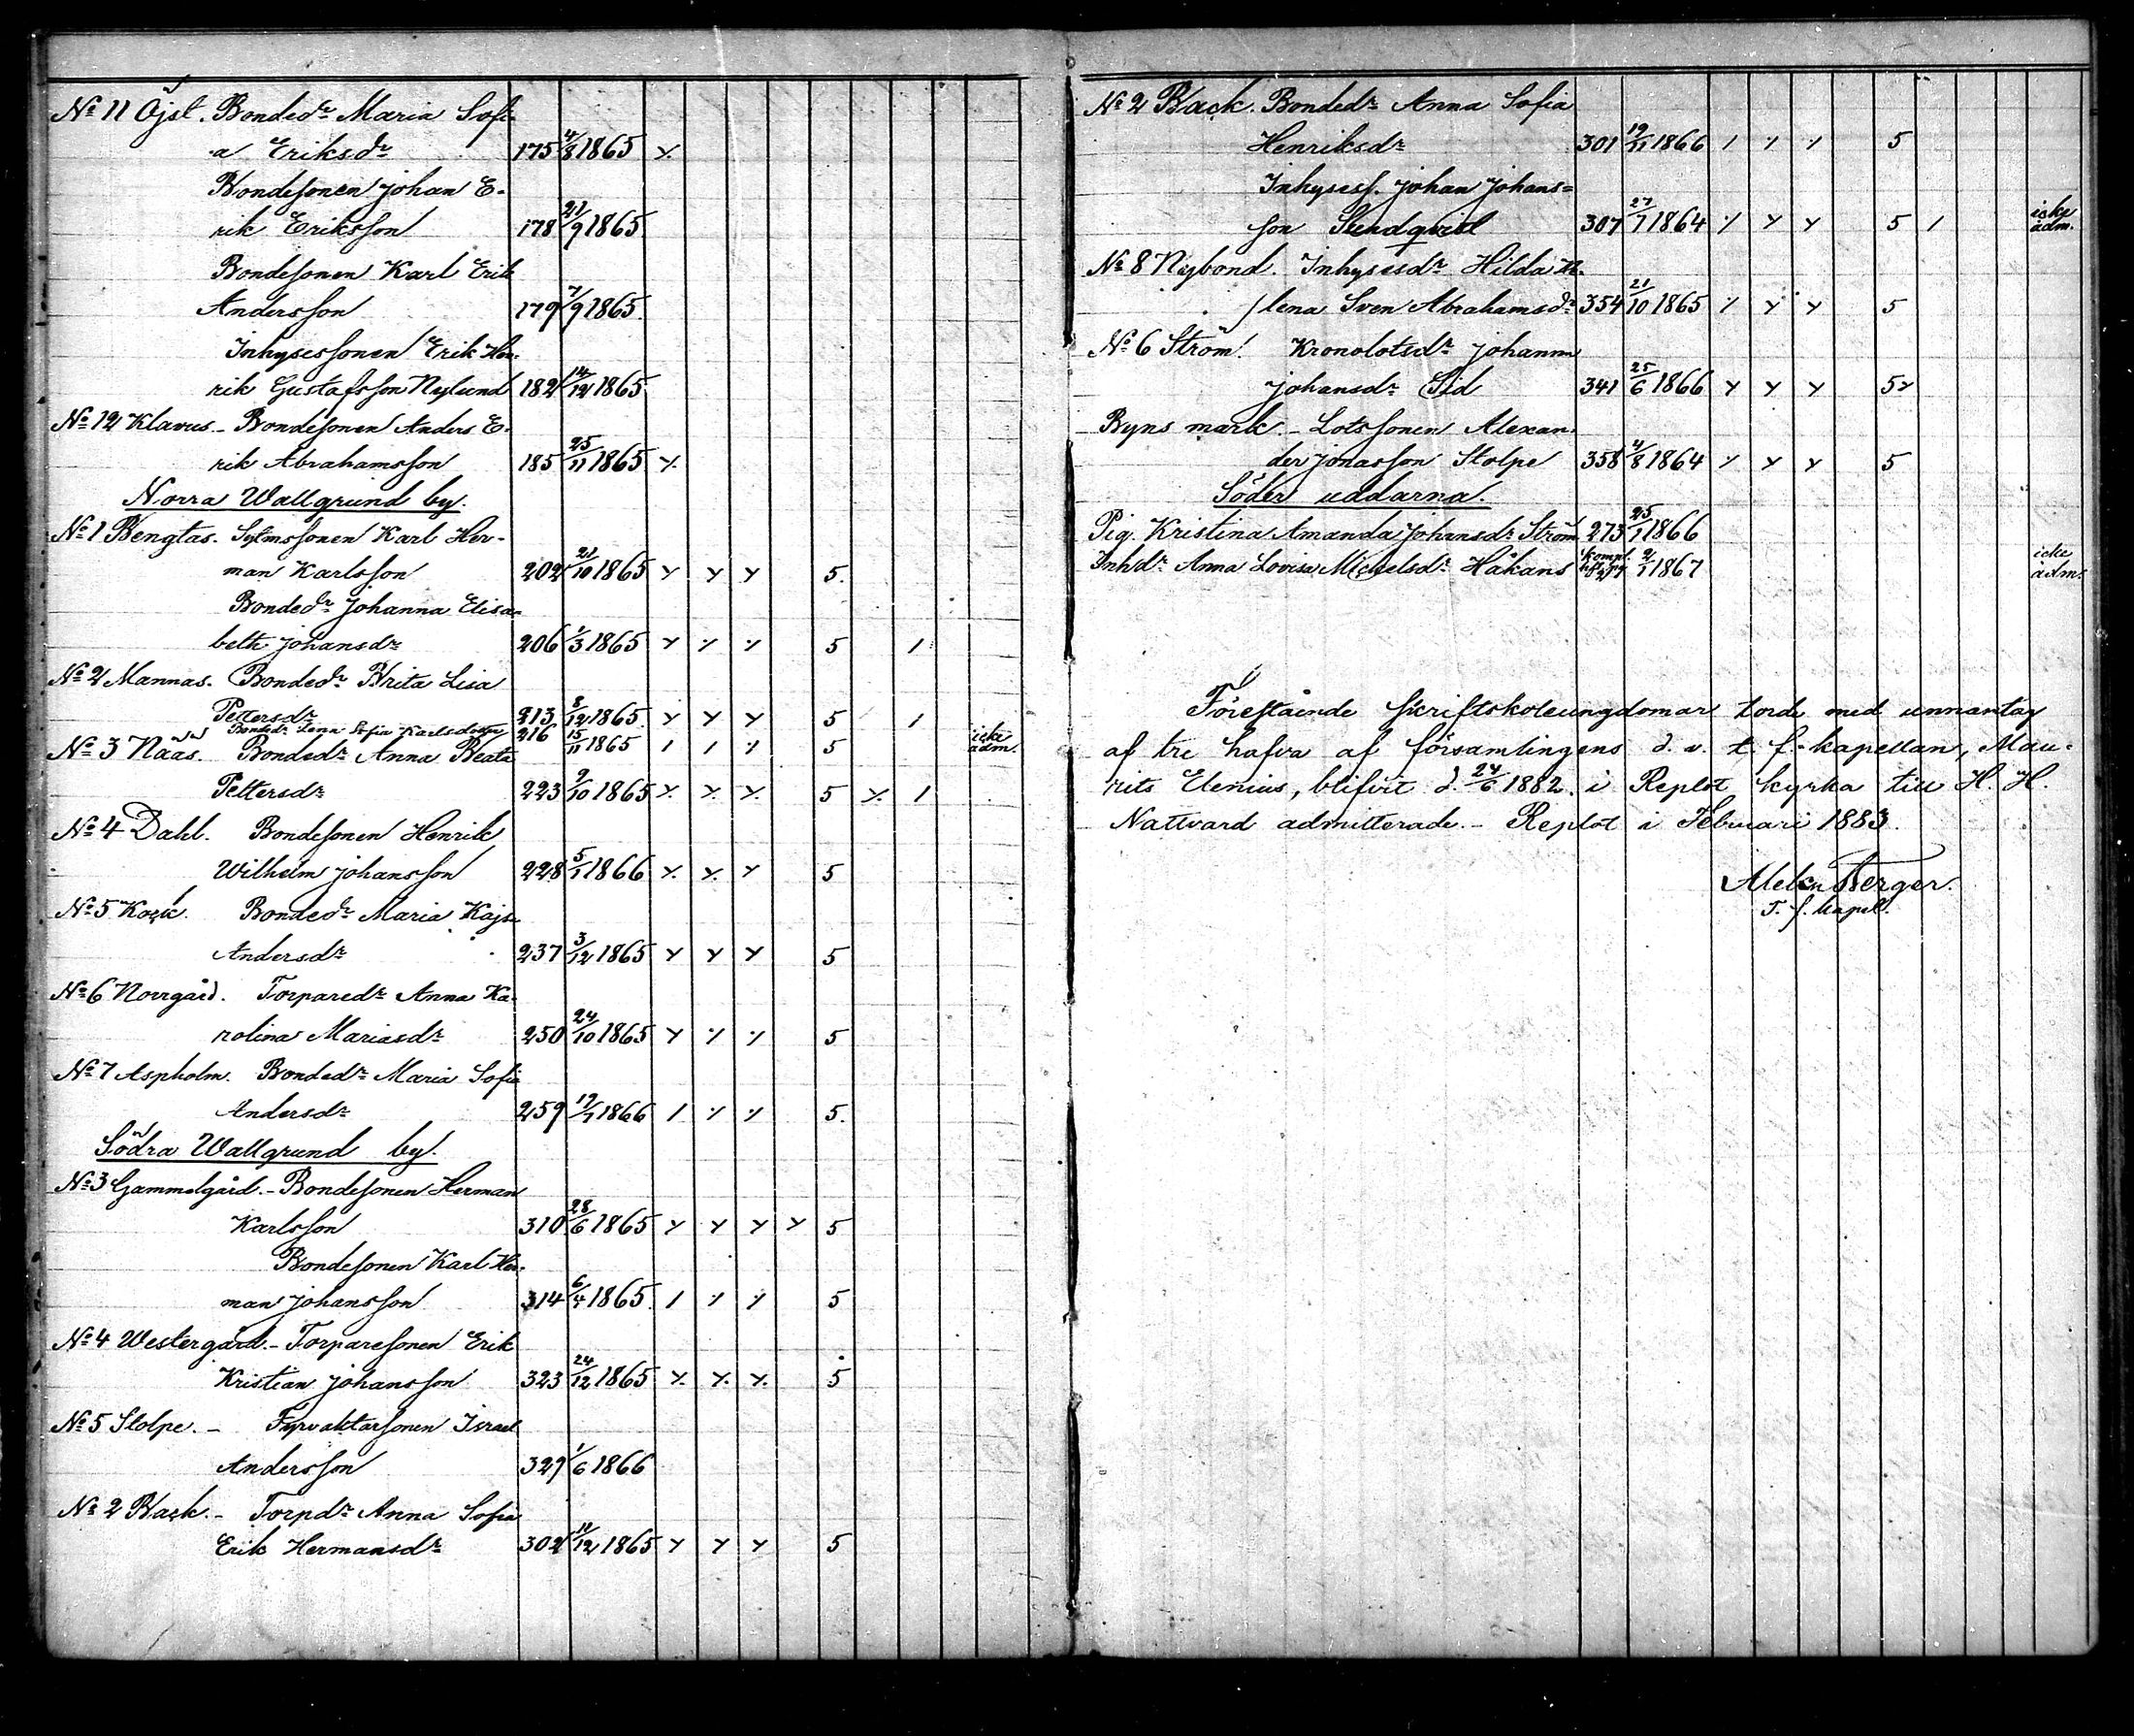 No 11 Öjst. Bondedr Maria Sofi-
a Eriksdr 175 4/8 1865 y.
Bondesonen Johan E-
rik Eriksson 178 21/9 1865
Bondesonen Karl Erik
Andersson 179 7/9 1865.
Inhysessonen Erik Hen-
rik Gustafsson Nylund 182 14/12 1865
No 12 Klavus. - Bondesonen Anders E-
rik Abrahamsson 185 25/11 1865 y.
Norra Wallgrund by.
No 1 Bengtas. Sytmssonen Karl Her-
man Karlsson 202 21/10 1865 y y y 5.
Bondedr Johanna Elisa-
beth Johansdr 206 1/3 1865 y y y 5 1
No 2 Mannas. Bondedr Brita Lisa
Pettersdr 213 8/12 1865. y y y 5 1
Bondedr Lena Sofia Karlsdotter 216 15/11 1865 1 1 y 5 icke adm.
No 3 Nääs. Bondedr Anna Beata
Pettersdr 223 9/10 1865 y. y. y. 5 y. 1
No 4 Dahl. Bondesonen Henrik
Wilhelm Johansson 228 5/1 1866 y. y. y 5
No 5 Kock. Bondedr Maria Kajsa
Andersdr 237 3/12 1865 y y y 5
No 6 Norrgård. Torparedr Anna Ka-
rolina Mariasdr 250 24/10 1865 y y y 5
No 7 Aspholm. Bondedr Maria Sofia
Andersdr 259 19/1 1866 1 y y 5.
Södra Wallgrund by.
No 3 Gammelgård. - Bondesonen Herman
Karlsson 310 28/6 1865 y y y y 5
Bondesonen Karl Her-
man Johansson 314 6/4 1865. 1 y y 5
No 4 Westergård. - Torparesonen Erik
Kristian Johansson 323 24/12 1865 y. y. y. 5
No 5 Stolpe. - Fyrvaktarsonen Israel
Andersson 329 1/6 1866
No 2 Back. - Torpdr Anna Sofia
Erik Hermansdr 302 11/12 1865 y y y 5
No 2 Back. Bondedr Anna Sofia
Henriksdr 301 19/11 1866 1 y y 5
Inhysess. Johan Johans=
son Sundqvist 307 27/1 1864 y y y 5 1 icke adm.
No 8 Nybond. Inhysesdr Hilda He-
lena Sven Abrahamsdr 354 21/10 1865 y y y 5
No 6 Ström. Kronolotsdr Johanna
Johansdr Sid 341 25/6 1866 y y y 5
Byns mark. - Lotssonen Alexan-
der Jonasson Stolpe 358 4/8 1864 y y y 5
Söder uddarna.
Pig. Kristina Amanda Johansdr Ström 273 25/1 1866
Inhdr Anna Lovisa Michelsdr Håkans 2/1 1867 icke adm.
Förestående skriftskoleungdomar torde med unnantag
af tre hafva af församlingens d. v. t. f. kapellan, Mau-
rits Elenius, blifvit d. 24/6 1882. i Replot kyrka till H. H.
Nattvard admitterade. - Replot i Februari 1883.
Berger.
T. f. kapel.